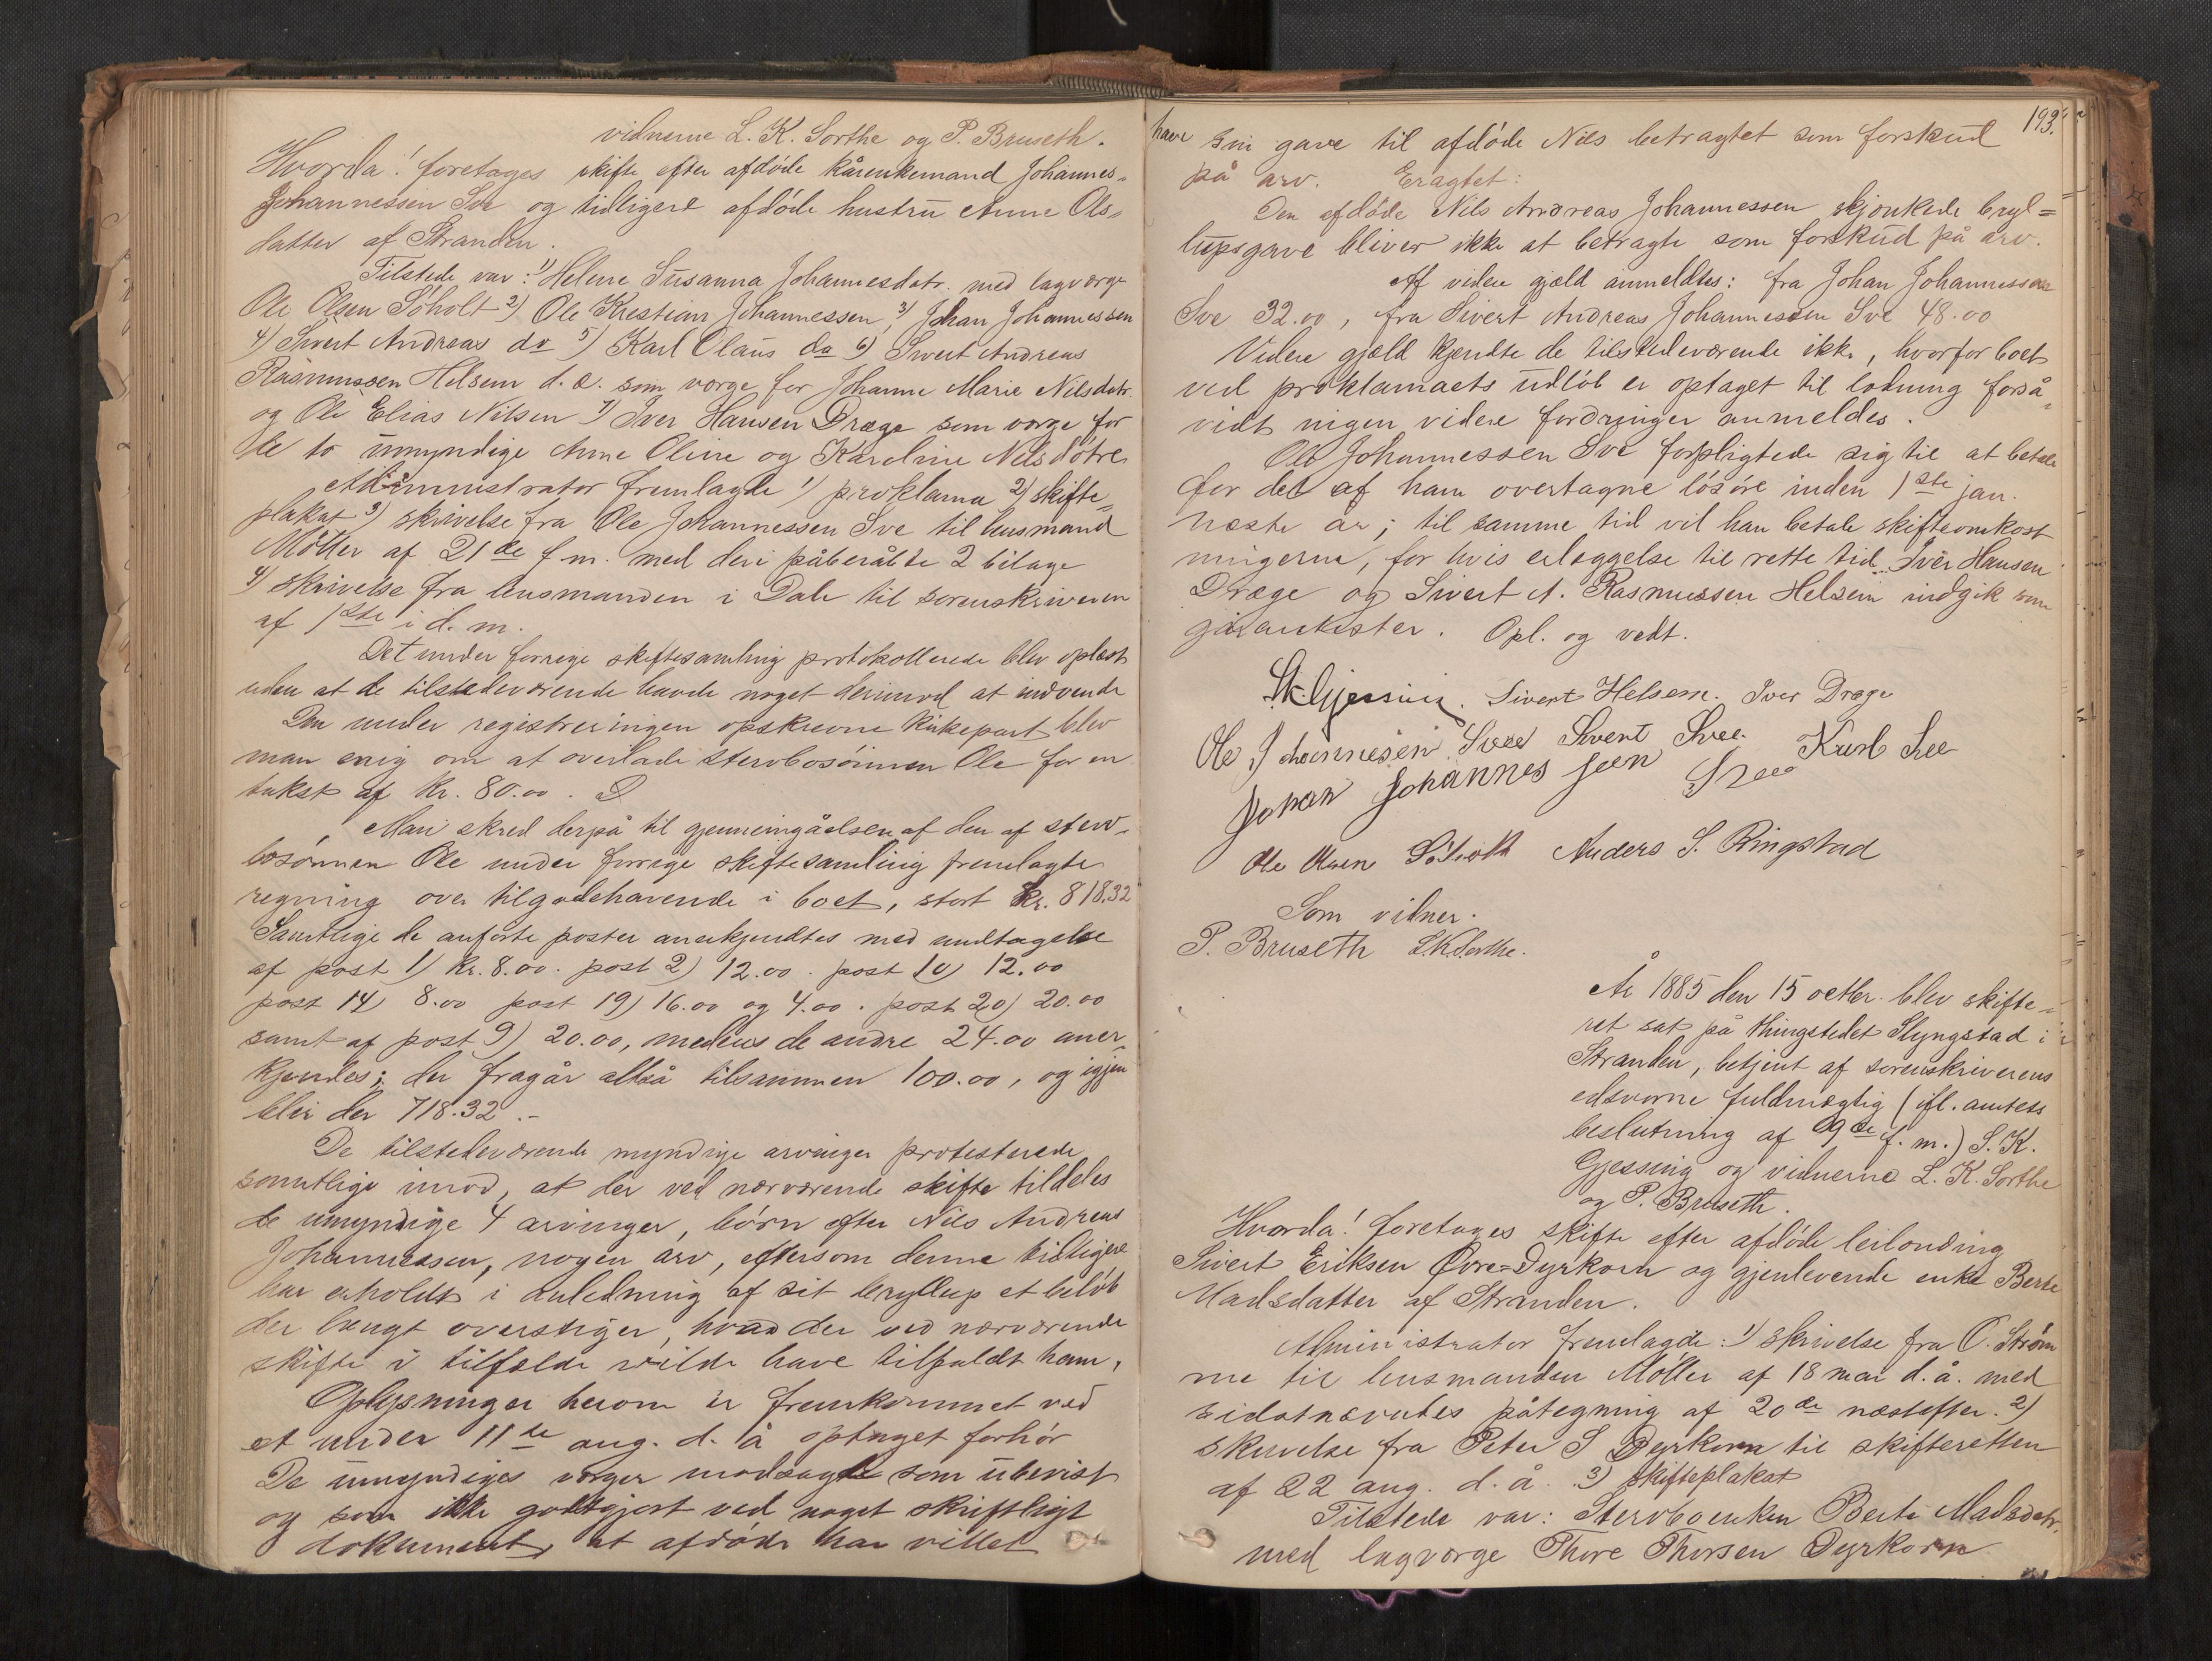 vidnerne L. K. Sorthe og P. Bruseth.
Hvorda! foretages skifte efter afdøde kårenkemand Johannes
Johannessen Sve og tidligere afdøde hustru Anne Ols-
datter af Stranden.
Tilstede var: 1) Helene Susanna Johannesdatr. med lagværge
Ole Olsen Søholt 2) Ole Kristian Johannessen, 3) Johan Johannessen
4) Sivert Andreas do 5) Karl Olaus do 6) Sivert Andreas
Rasmussen Helsem d. æ. som værge for Johanne Marie Nilsdatr.
og Ole Elias Nilsen 7) Iver Hansen Dræge som værge for
de to umyndige Anne Oline og Karoline Nilsdøtre
Administrator fremlagde 1) proklama 2) skifte-
plakat 3) skrivelse fra Ole Johannessen Sve til lensmand
Møller af 21de f. m. med deri påberåbte 2 bilage
4) skrivelse fra lensmanden i Dale til sorenskriveren
af 1ste i d. m.
Det under forrige skiftesamling protokollerede blev oplæst
uden at de tilstedeværende havde noget derimod at indvende
Den under registreringen opskrevne kirkepart blev
man enig om at overlade stervbosønnen Ole for en
takst af kr. 80.00.
Man skred derpå til gjennemgåelsen af den af sterv-
bosønnen Ole under forrige skiftesamling fremlagte
regning over tilgodehavende i boet, stort kr. 818.32
Samtlige de anførte poster anerkjendtes med undtagelse
af post 1) kr. 8.00. post 2) 12.00. post 10) 12.00
post 14) 8.00 post 19) 16.00 og 4.00. post 20) 20.00
samt af post 9) 20.00, medens de andre 24.00 aner-
kjendes; der fragår altså tilsammen 100.00, og igjen
blir der 718.32.-
De tilstedeværende myndige arvinger protesterede
samtlige imod, at der ved nærværende skifte tildeles
de umyndige 4 arvinger, børn efter Nils Andreas
Johannessen, nogen arv, eftersom denne tidligere
har erholdt i anledning af sit bryllup et beløb
der langt overstiger, hvad der ved nærværende
skifte i tilfælde vilde have tilfaldt ham,
Oplysninger herom er fremkommet ved
et under 11te aug. d. å optaget forhør
De umyndiges værger modsagde som ubevist
og som ikke godtgjort ved noget skriftligt
dokument, at afdøde har villet
193.
have sin gave til afdøde Nils betragtet som forskud
på arv. Eragtet:
Den afdøde Nils Andreas Johannessen skjænkede bryl=
lupsgave bliver ikke at betragte som forskud på arv.
Af videre gjæld anmeldtes: fra Johan Johannessen
Sve 32.00, fra Sivert Andreas Johannessen Sve 48.00
Videre gjæld kjendte de tilstedeværende ikke, hvorfor boet
ved proklamaets udløb er optaget til lodning forså-
vidt nigen videre fordringer anmeldes.
Ole Johannessen Sve forpligtede sig til at betale
for det af ham overtagne løsøre inden 1ste jan.
næste år; til samme tid vil han betale skifteomkost
ningerne, for hvis erlæggelse til rette tid Iver Hansen
Dræge og Sivert A. Rasmussen Helsem indgik som
garantister. Opl. og vedt.
S.K. Gjessing. Sivert Helsem. Iver Dræge
Ole Johannesen Svee Sivert Svee. Karl Sve
Johan Johannes seen Svee
Ole Olsen Søholt Anders S. Ringstad
Som vidner.
P. Bruseth L.K.Sorthe.
År 1885 den 15 octbr. blev skifte-
ret sat på thingstedet Slyngstad i
Stranden, betjent af sorenskriverens
edsvorne fuldmægtig (ifl. amtets
beslutning af 9de f. m.) S. K.
Gjessing og vidnerne L. K. Sorthe
og P. Bruseth.
Hvorda! foretages skifte efter afdøde leilænding
Sivert Eriksen Øvre=Dyrkorn og gjenlevende enke Berte
Madsdatter af Stranden.
Administrator fremlagde: 1) skrivelse fra O. Strøm
me til lensmanden Møller af 18 mai d. å. med
sidstnævntes påtegning af 20de næstefter. 2)
skrivelse fra Peter S Dyrkorn til skifteretten
af 22 aug. d. å. 3) skifteplakat
Tilstede var: Stervboenken Berte Madsdatr.
med lagværge Thore Thorsen Dyrkorn